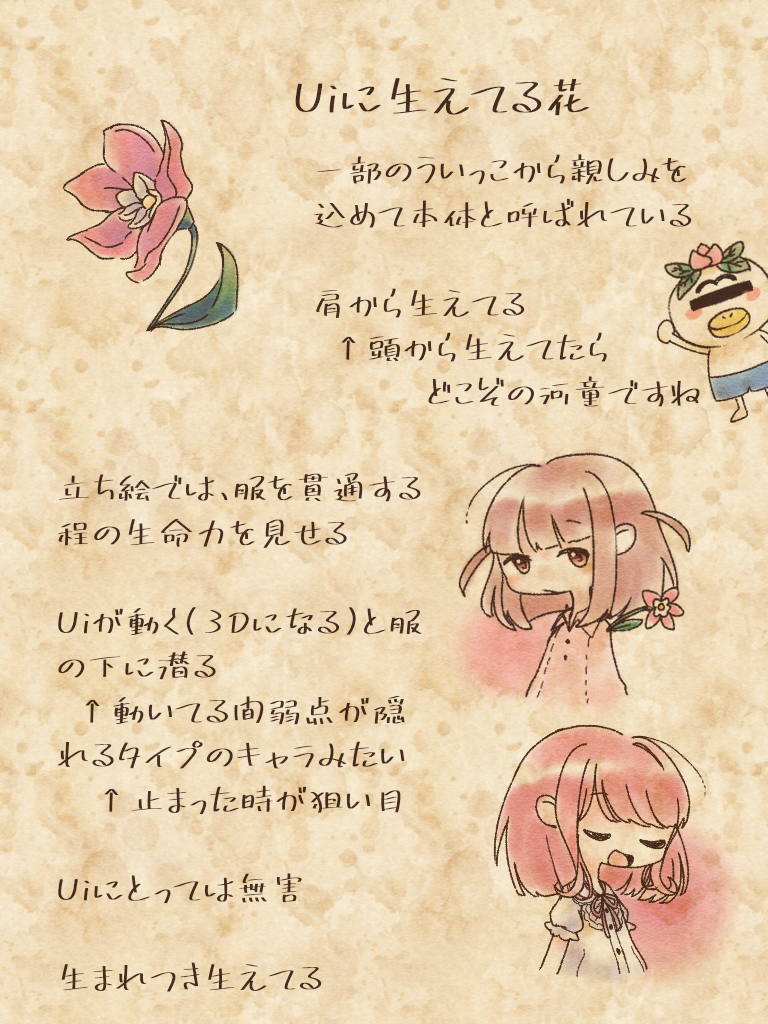 Uiに生えてる花
一部のういっこから親しみを
込めて本体と呼ばれている
肩から生えてる
↑頭から生えてたら
どこぞの河童ですね
立ち絵では、服を貫通する
程の生命力を見せる
Uiが動く(3Dになる)と服
の下に潜る
↑動いてる間弱点が隠
れるタイプのキャラみたい
↑止まった時が狙い目
Uiにとっては無害
生まれつき生えてる